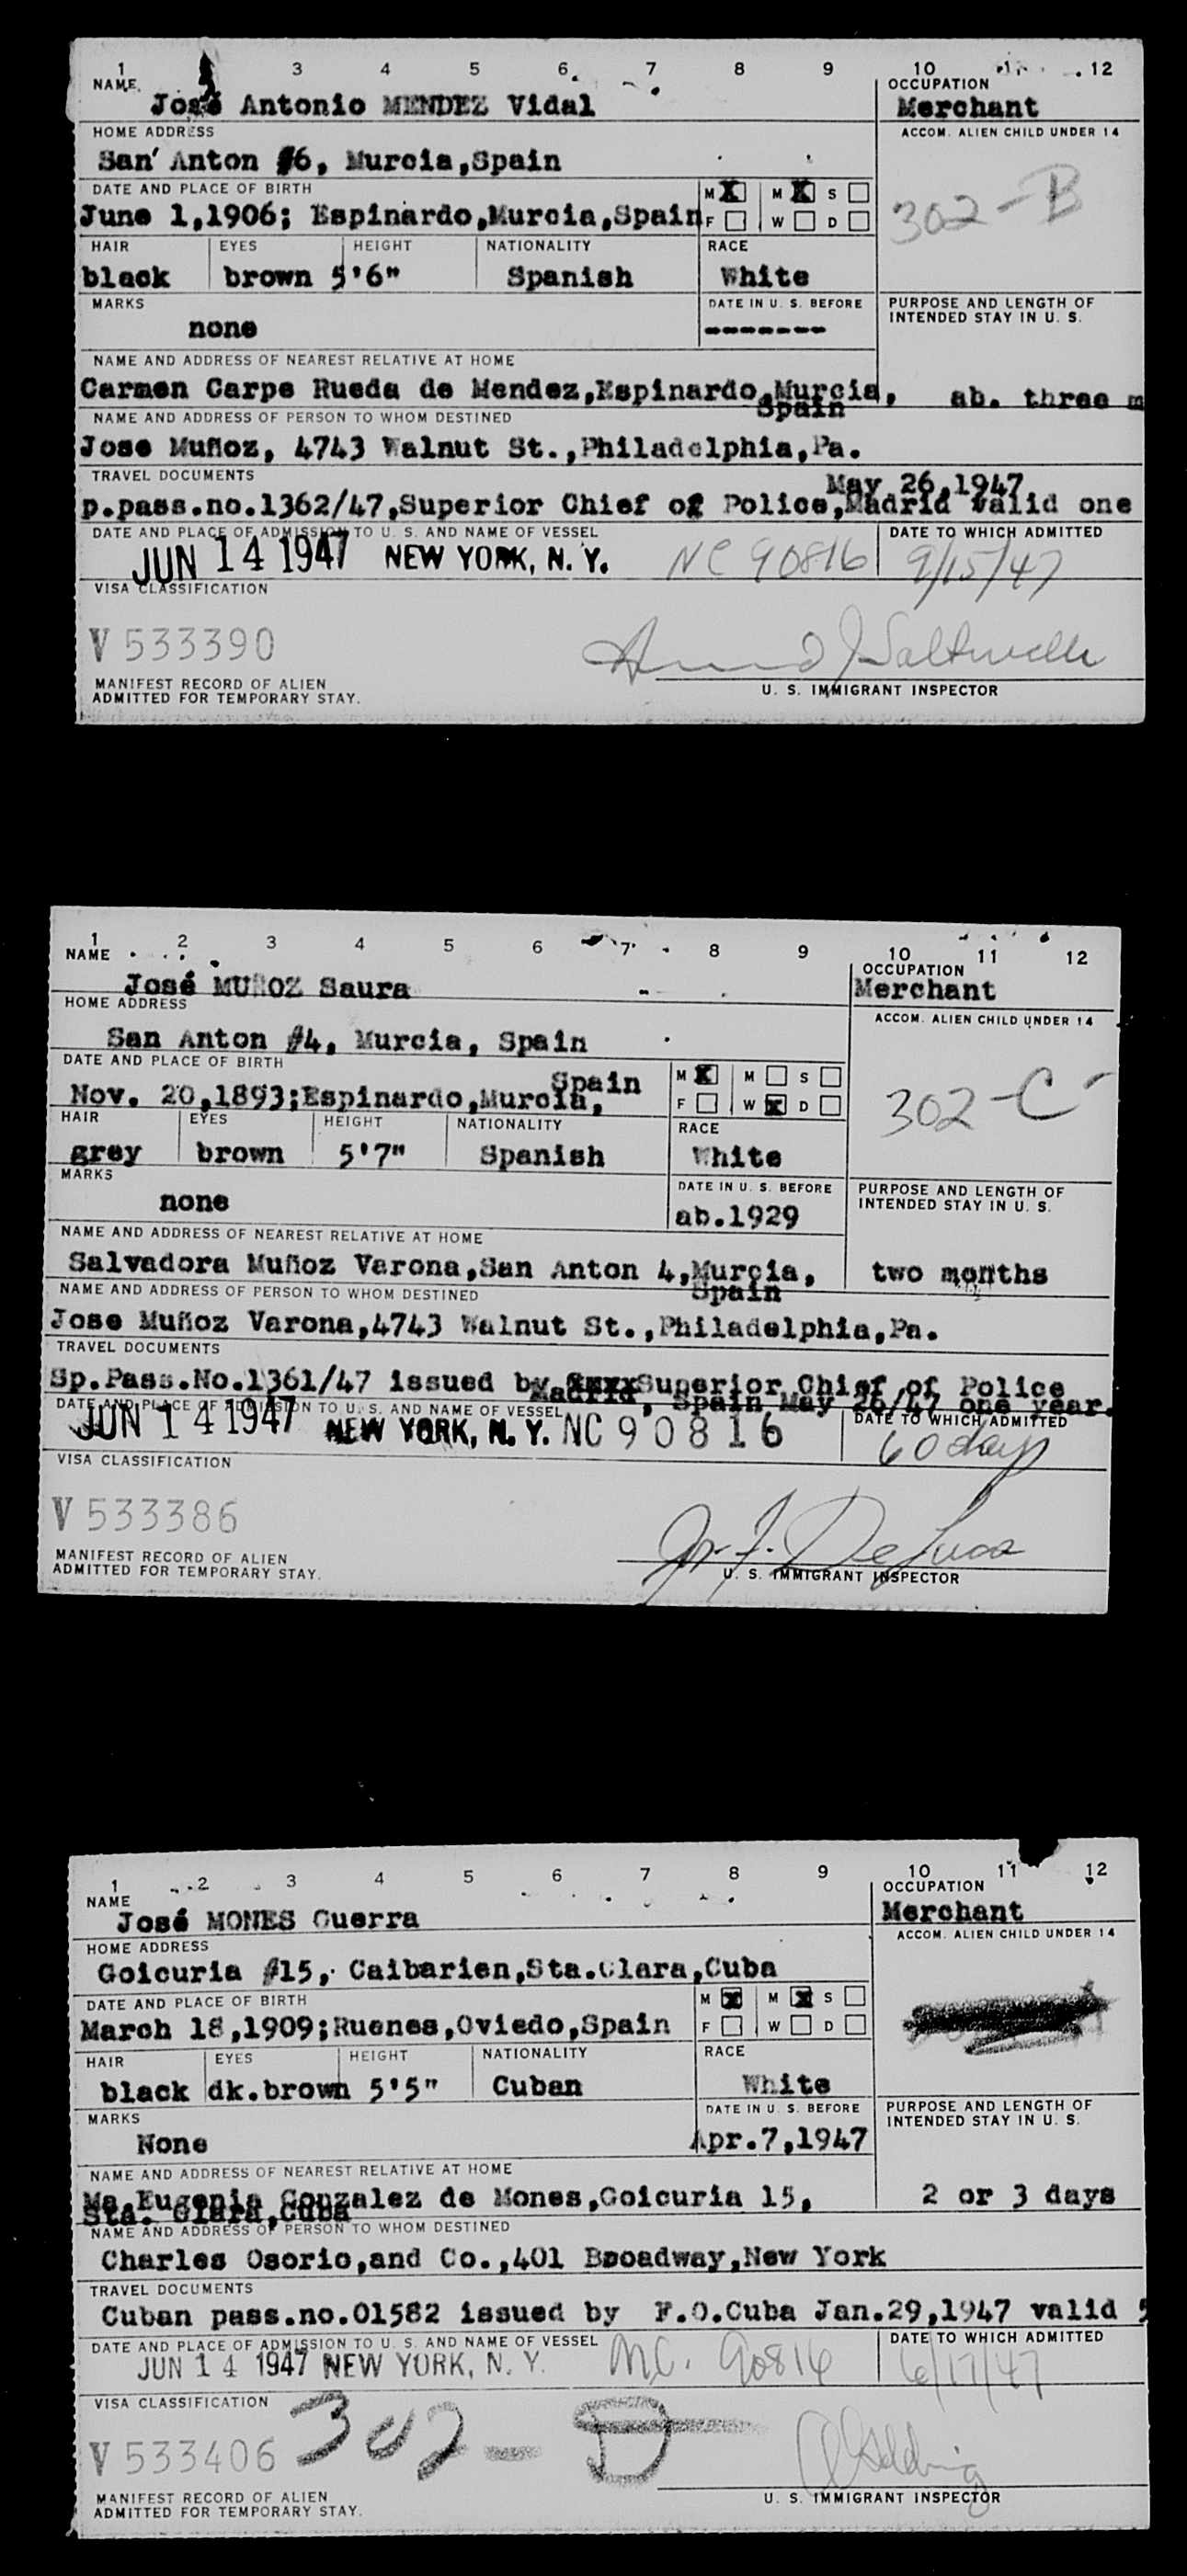 1 3 4 5 6 7 8 9 10 11 12
NAME OCCUPATION
José Antonio MENDEZ Vidal Merchant
HOME ADDRESS ACCOM. ALIEN CHILD UNDER 14
San' Anton #6, Murcia,Spain
302-B
DATE AND PLACE OF BIRTH M X M X S
June 1,1906; Espinardo,Murcia,Spain F W D
HAIR EYES HEIGHT NATIONALITY RACE
black brown 5'6" Spanish White
MARKS DATE IN U. S. BEFORE PURPOSE AND LENGTH OF
INTENDED STAY IN U. S.
none -------
NAME AND ADDRESS OF NEAREST RELATIVE AT HOME
Carmen Carpe Rueda de Mendez,Espinardo,Murcia, ab. three m
Spain
NAME AND ADDRESS OF PERSON TO WHOM DESTINED
Jose Muñoz, 4743 Walnut St.,Philadelphia,Pa.
TRAVEL DOCUMENTS
May 26,1947
p.pass.no.1362/47,Superior Chief of Police,Madrid valid one
DATE AND PLACE OF ADMISSION TO U. S. AND NAME OF VESSEL DATE TO WHICH ADMITTED
JUN 14 1947 NEW YORK, N. Y. NC 90816 9/15/47
VISA CLASSIFICATION
V 533390
MANIFEST RECORD OF ALIEN
ADMITTED FOR TEMPORARY STAY.
U. S. IMMIGRANT INSPECTOR
1 2 3 4 5 6 7 8 9 10 11 12
NAME OCCUPATION
José MUÑOZ Saura Merchant
HOME ADDRESS ACCOM. ALIEN CHILD UNDER 14
San Anton #4, Murcia, Spain
302-C
DATE AND PLACE OF BIRTH M X M S
Spain
Nov. 20,1893;Espinardo,Murcia, F W X D
HAIR EYES HEIGHT NATIONALITY RACE
grey brown 5'7" Spanish White
MARKS DATE IN U. S. BEFORE PURPOSE AND LENGTH OF
INTENDED STAY IN U. S.
none ab.1929
NAME AND ADDRESS OF NEAREST RELATIVE AT HOME
Salvadora Muñoz Varona,San Anton 4,Murcia, two months
Spain
NAME AND ADDRESS OF PERSON TO WHOM DESTINED
Jose Muñoz Varona,4743 Walnut St.,Philadelphia,Pa.
TRAVEL DOCUMENTS
Sp.Pass.No.1361/47 issued by Superior Chief of Police
Madrid, Spain May 26/47 one year.
DATE AND PLACE OF ADMISSION TO U. S. AND NAME OF VESSEL DATE TO WHICH ADMITTED
JUN 14 1947 NEW YORK, N. Y. NC 90816 60 days
VISA CLASSIFICATION
V 533386
Jos. F. DeLuca
MANIFEST RECORD OF ALIEN
ADMITTED FOR TEMPORARY STAY.
U. S. IMMIGRANT INSPECTOR
1 2 3 4 5 6 7 8 9 10 11 12
NAME OCCUPATION
José MONES Guerra Merchant
HOME ADDRESS ACCOM. ALIEN CHILD UNDER 14
Goicuria #15, Caibarien,Sta.Clara,Cuba
DATE AND PLACE OF BIRTH M X M X S
March 18,1909;Ruenes,Oviedo,Spain F W D
HAIR EYES HEIGHT NATIONALITY RACE
black dk.brown 5'5" Cuban White
MARKS DATE IN U. S. BEFORE PURPOSE AND LENGTH OF
INTENDED STAY IN U. S.
None Apr.7,1947
NAME AND ADDRESS OF NEAREST RELATIVE AT HOME
Ma.Eugenia Gonzalez de Mones,Goicuria 15, 2 or 3 days
Sta. Clara,Cuba
NAME AND ADDRESS OF PERSON TO WHOM DESTINED
Charles Osorio,and Co.,401 Broadway,New York
TRAVEL DOCUMENTS
Cuban pass.no.01582 issued by F.O.Cuba Jan.29,1947 valid 5
DATE AND PLACE OF ADMISSION TO U. S. AND NAME OF VESSEL DATE TO WHICH ADMITTED
JUN 14 1947 NEW YORK, N. Y. NC. 90816 6/17/47
VISA CLASSIFICATION
302-D
V 533406
MANIFEST RECORD OF ALIEN
ADMITTED FOR TEMPORARY STAY.
U. S. IMMIGRANT INSPECTOR